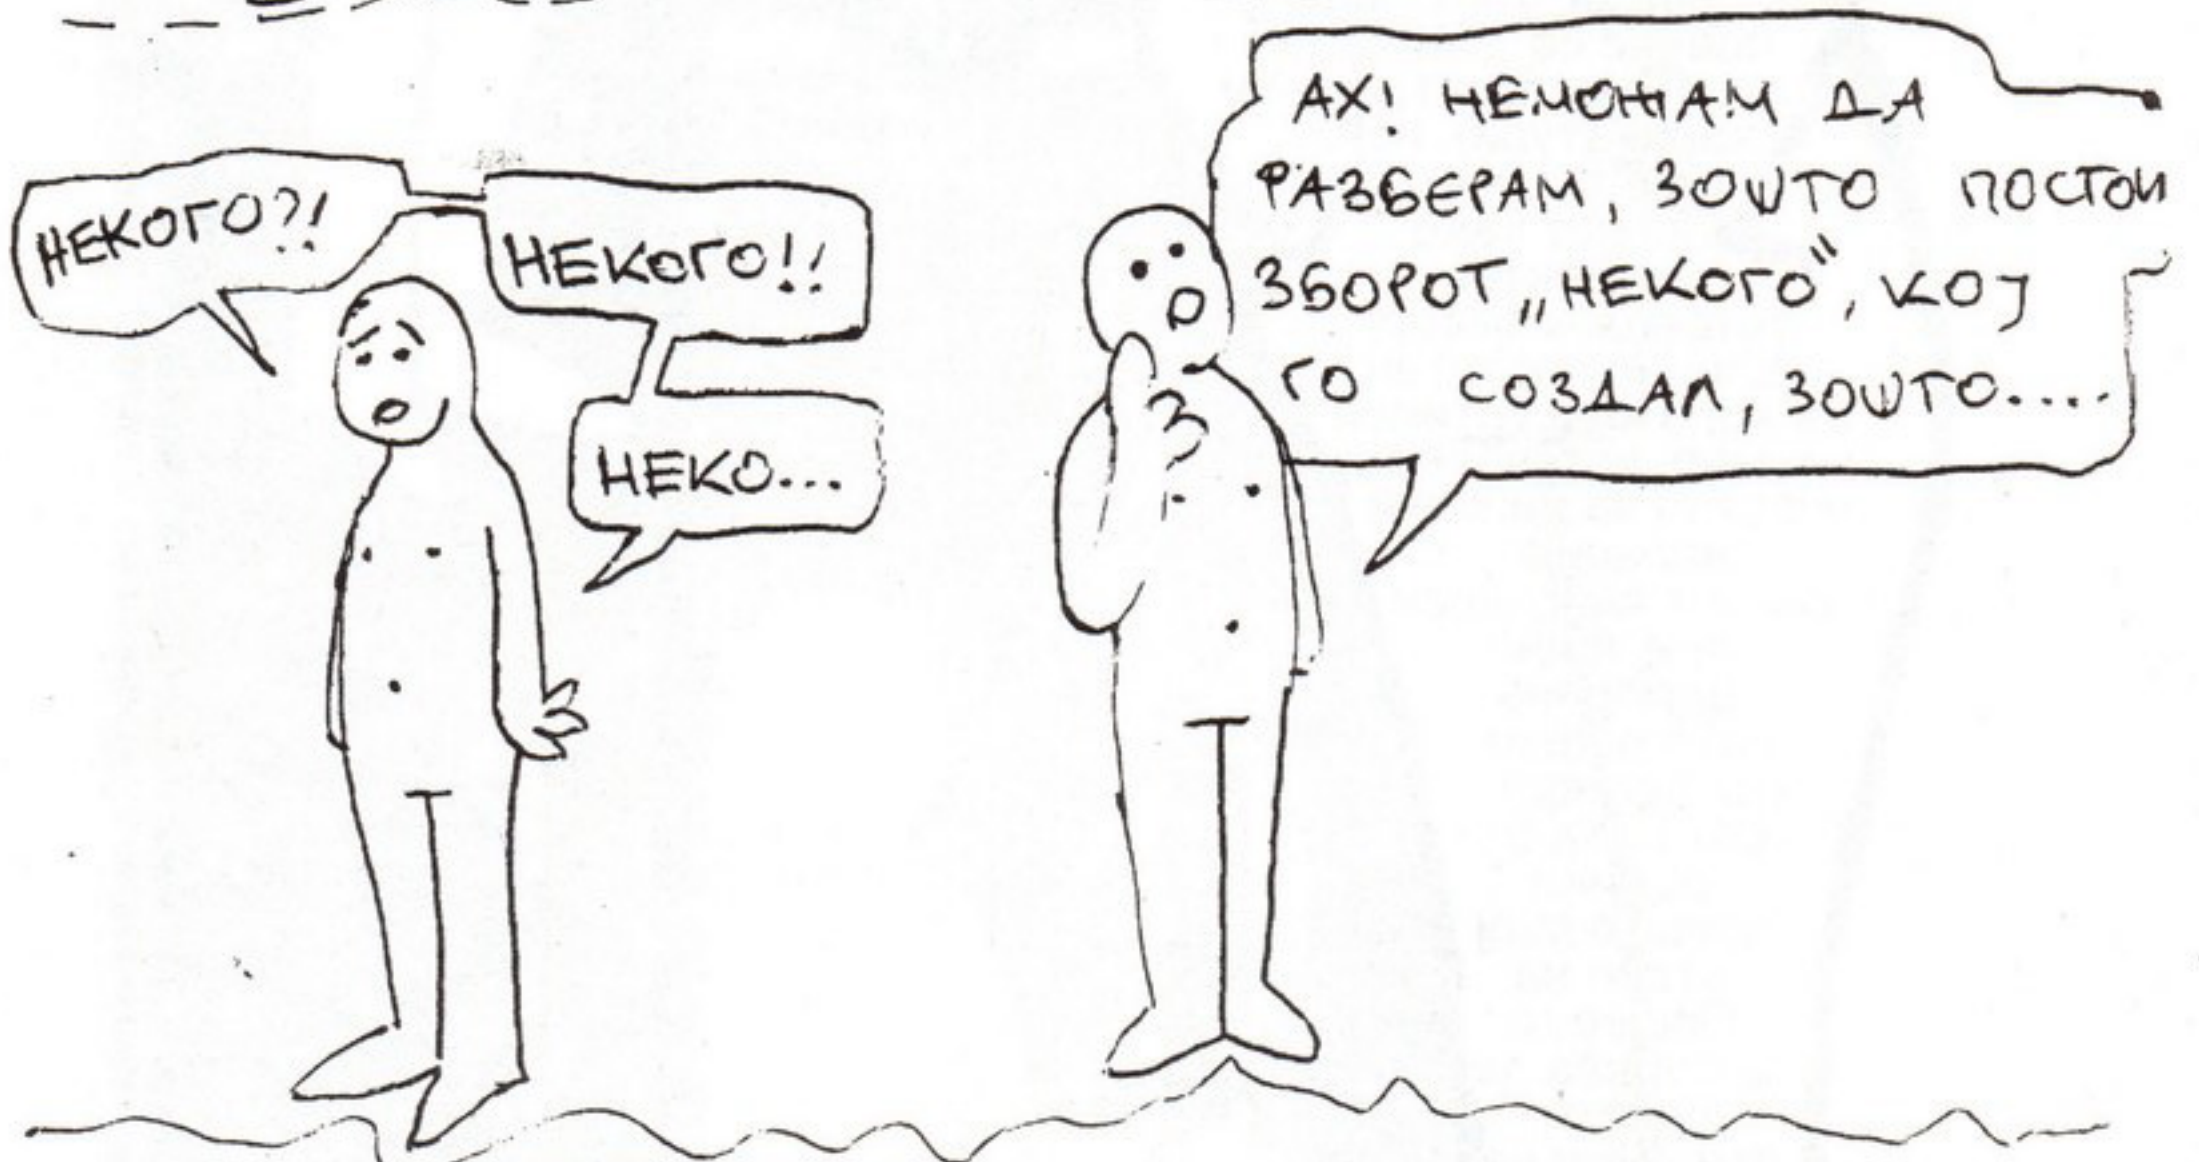 НЕКОГО?!
НЕКОГО!!
НЕКО...
АХ! НЕМОЖАМ ДА
РАЗБЕРАМ, ЗОШТО ПОСТОИ
ЗБОРОТ „НЕКОГО", КОЈ
ГО СОЗДАЛ, ЗОШТО....